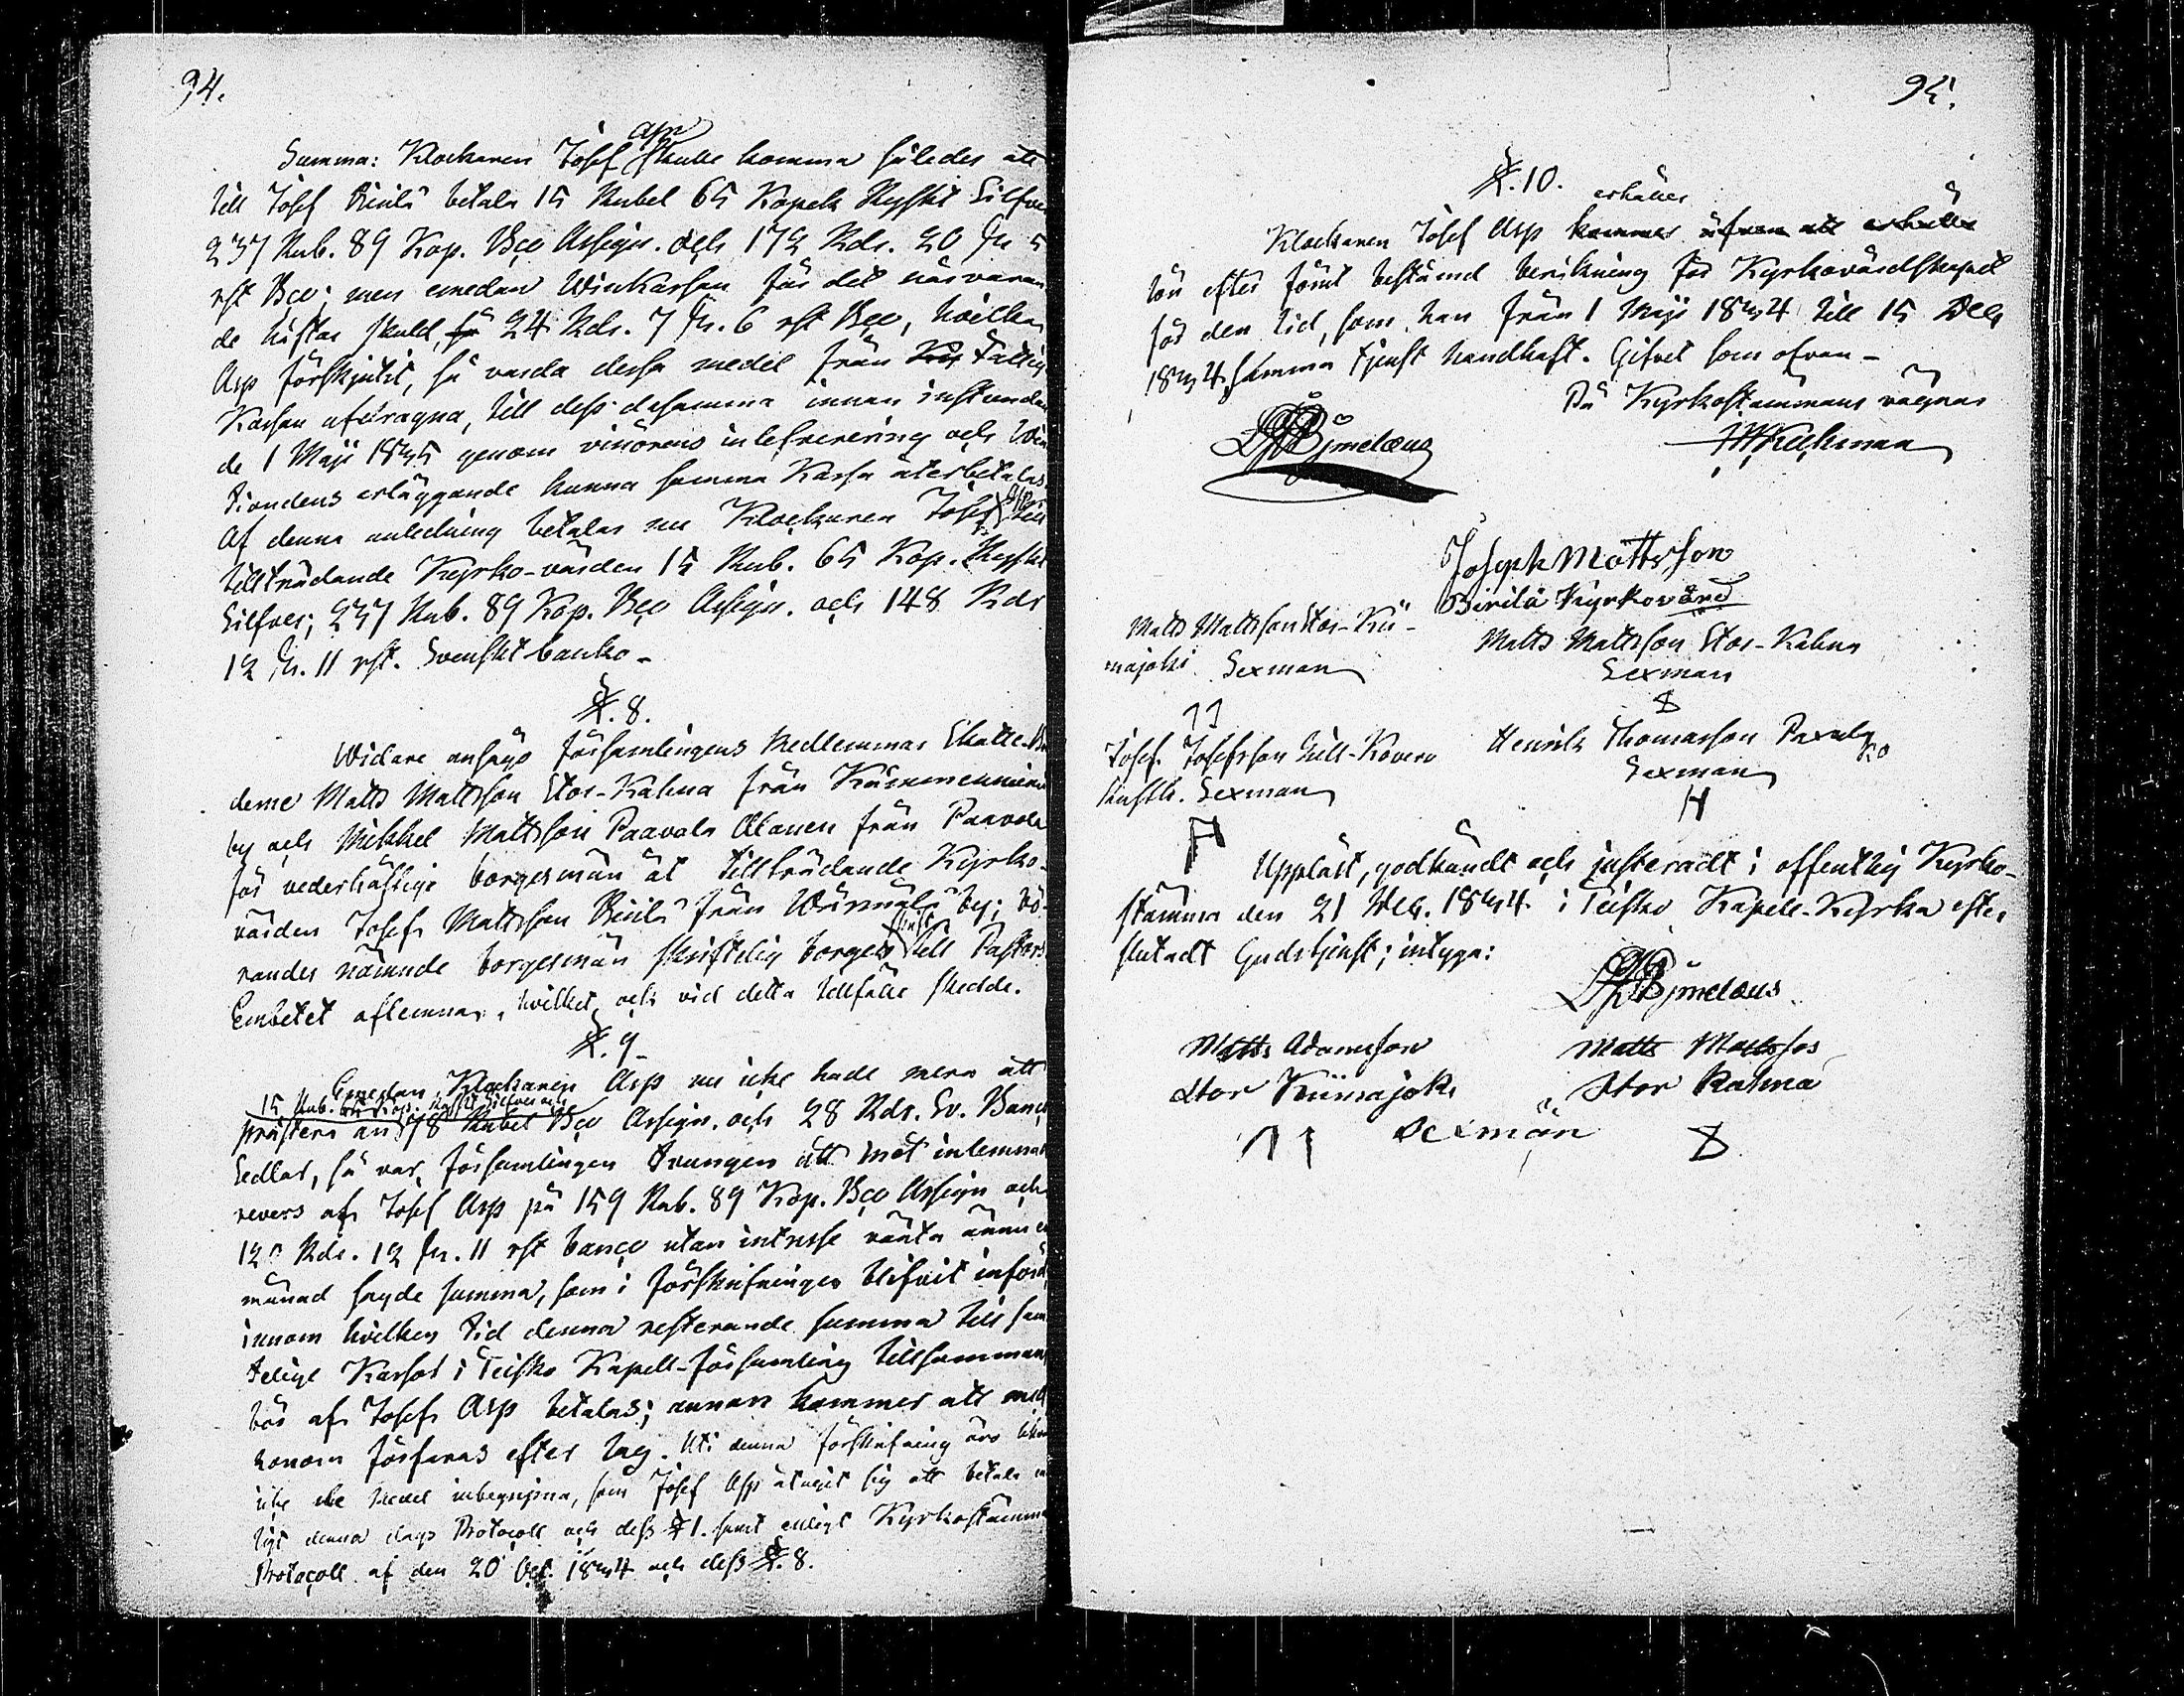 94.
Asp
Summa: Klockaren Josef skulle komma således att
till Josef Birilä betala 15 Rubel 65 Kopek Ryskt Silfver
237 Rub. 89 Kop. Bco Assign. och 172 Rdr. 20 sk 5
rst Bco; men emedan Winkassan för det närvaran
de häftar skuld, så 24 Rdr. 7 sk. 6 rst Bco, hvilka
Asp förskjutit, så varda dessa medel från Fattig
Kassan afdragna, till dess desamma innan instundan
de 1 Maji 1835 genom vinörens inlefverering och Vin
tiondens erläggande kunna samma Kassa återbetalas.
Af denna anledning betalar nu Klockaren Josef Asp till
tillträdande Kyrko-värden 15 Rub. 65 Kop. Ryskt
Silfver; 237 Rub. 89 Kop. Bco Assign. och 148 Rdr
12 sk. 11 rst. Svenskt banko.
§. 8.
Widare ansågo församlingens Medlemmar Skatte-Bön
derne Matts Mattsson Stor-Kahna från Kämmenniemi
by och Mickel Mattsson Paavola Alanen från Paavola
för vederhäftige borgesmän åt tillträdande Kyrko-
värden Josef Mattsson Birilä från Wärmälä by; bö-
randes nämnde borgesmän skriftelig borgesskrift till Pastors
Embetet aflemna, hvilket och vid detta tillfälle skedde.
§. 9.
Emedan Klockaren Asp nu icke hade mera att
15 Rub. 65 Kop. Ryskt Silfver och
prestera än 78 Rubel Bco Assign. och 28 Rdr. Sv. Banco
Sedlar, så var församlingen tvungen att mot inlemnad
revers af Josef Asp på 159 Rub. 89 Kop. Bco Assign och
120 Rdr. 12 sk. 11 rst banco utan intresse vänta ännu en
månad sagde summa, som i förskrifningen blifvit införd,
innom hvilken tid denna resterande summa till sam
telige Kassor i Teisko Kapell-församling tillsamman
bör af Josef Asp betalas; annars kommer att med
honom förfaras efter lag. Uti denna förskrifning äro likväl
icke de medel inbegripna, som Josef Asp åtagit sig att betala en
ligt denna dags Protocoll och dess § 1. samt enligt Kyrkostämmo
Protocoll af den 20 Oct. 1834 och dess §. 8.
95.
§. 10.
erhåller
Klockaren Josef Asp kommer äfven att erhålla
lön efter förut bestämd beräkning för Kyrkovärdskapet
för den tid, som han från 1 Maji 1834 till 15 Dec
1834 samma tjenst handhaft. Gifvet som ofvan -
På Kyrkostämmans vägnar
Björnelæus
Joseph Mattsson
Birilä Kyrkovärd
Matts Mattsson Stor-Kii-
majoki Sexman
Matts Mattsson Stor-Kahna
Sexman
Josef Josefsson Lill-Kovero
Rusth. Sexman
Henrik Thomasson Paxula
Sexman
H
Uppläst, godkändt och justeradt i offentlig Kyrko-
stämma den 21 Dec. 1834 i Teisko Kapell-Kyrka efter
slutadt Gudstjenst; intyga:
Björnelæus
Matts Adamsson
Stor Kiimajoki
Matts Mattsson
Stor Kahna
Sexmän